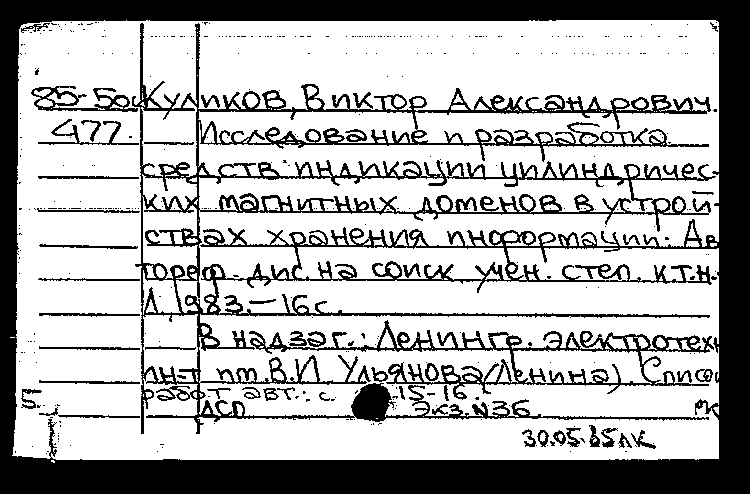 85-5од Куликов, Виктор Александрович.
477. Исследование и разработка
средств индикации цилиндричес-
ких магнитных доменов в устрой-
ствах хранения информации: Ав
тореф. дис. на соиск. учен. степ. к.т.н.
Л. 1983.-16 с.
В надзаг.: Ленингр. электротехн
ин-т им. В.И Ульянова (Ленина). Список
работ авт.: с. 15-16.
ДСП Экз. N36.
30.05.85